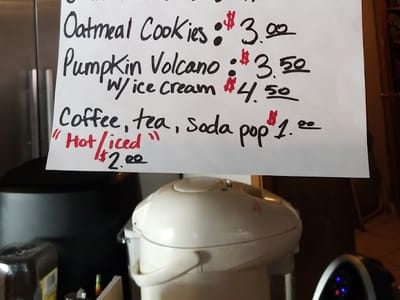 Oatmeal Cookies: $3.00
Pumpkin Volcano: $3.50
w/ice cream $4.50
Coffee, tea, soda pop $1.00
"Hot/iced"
$2.00